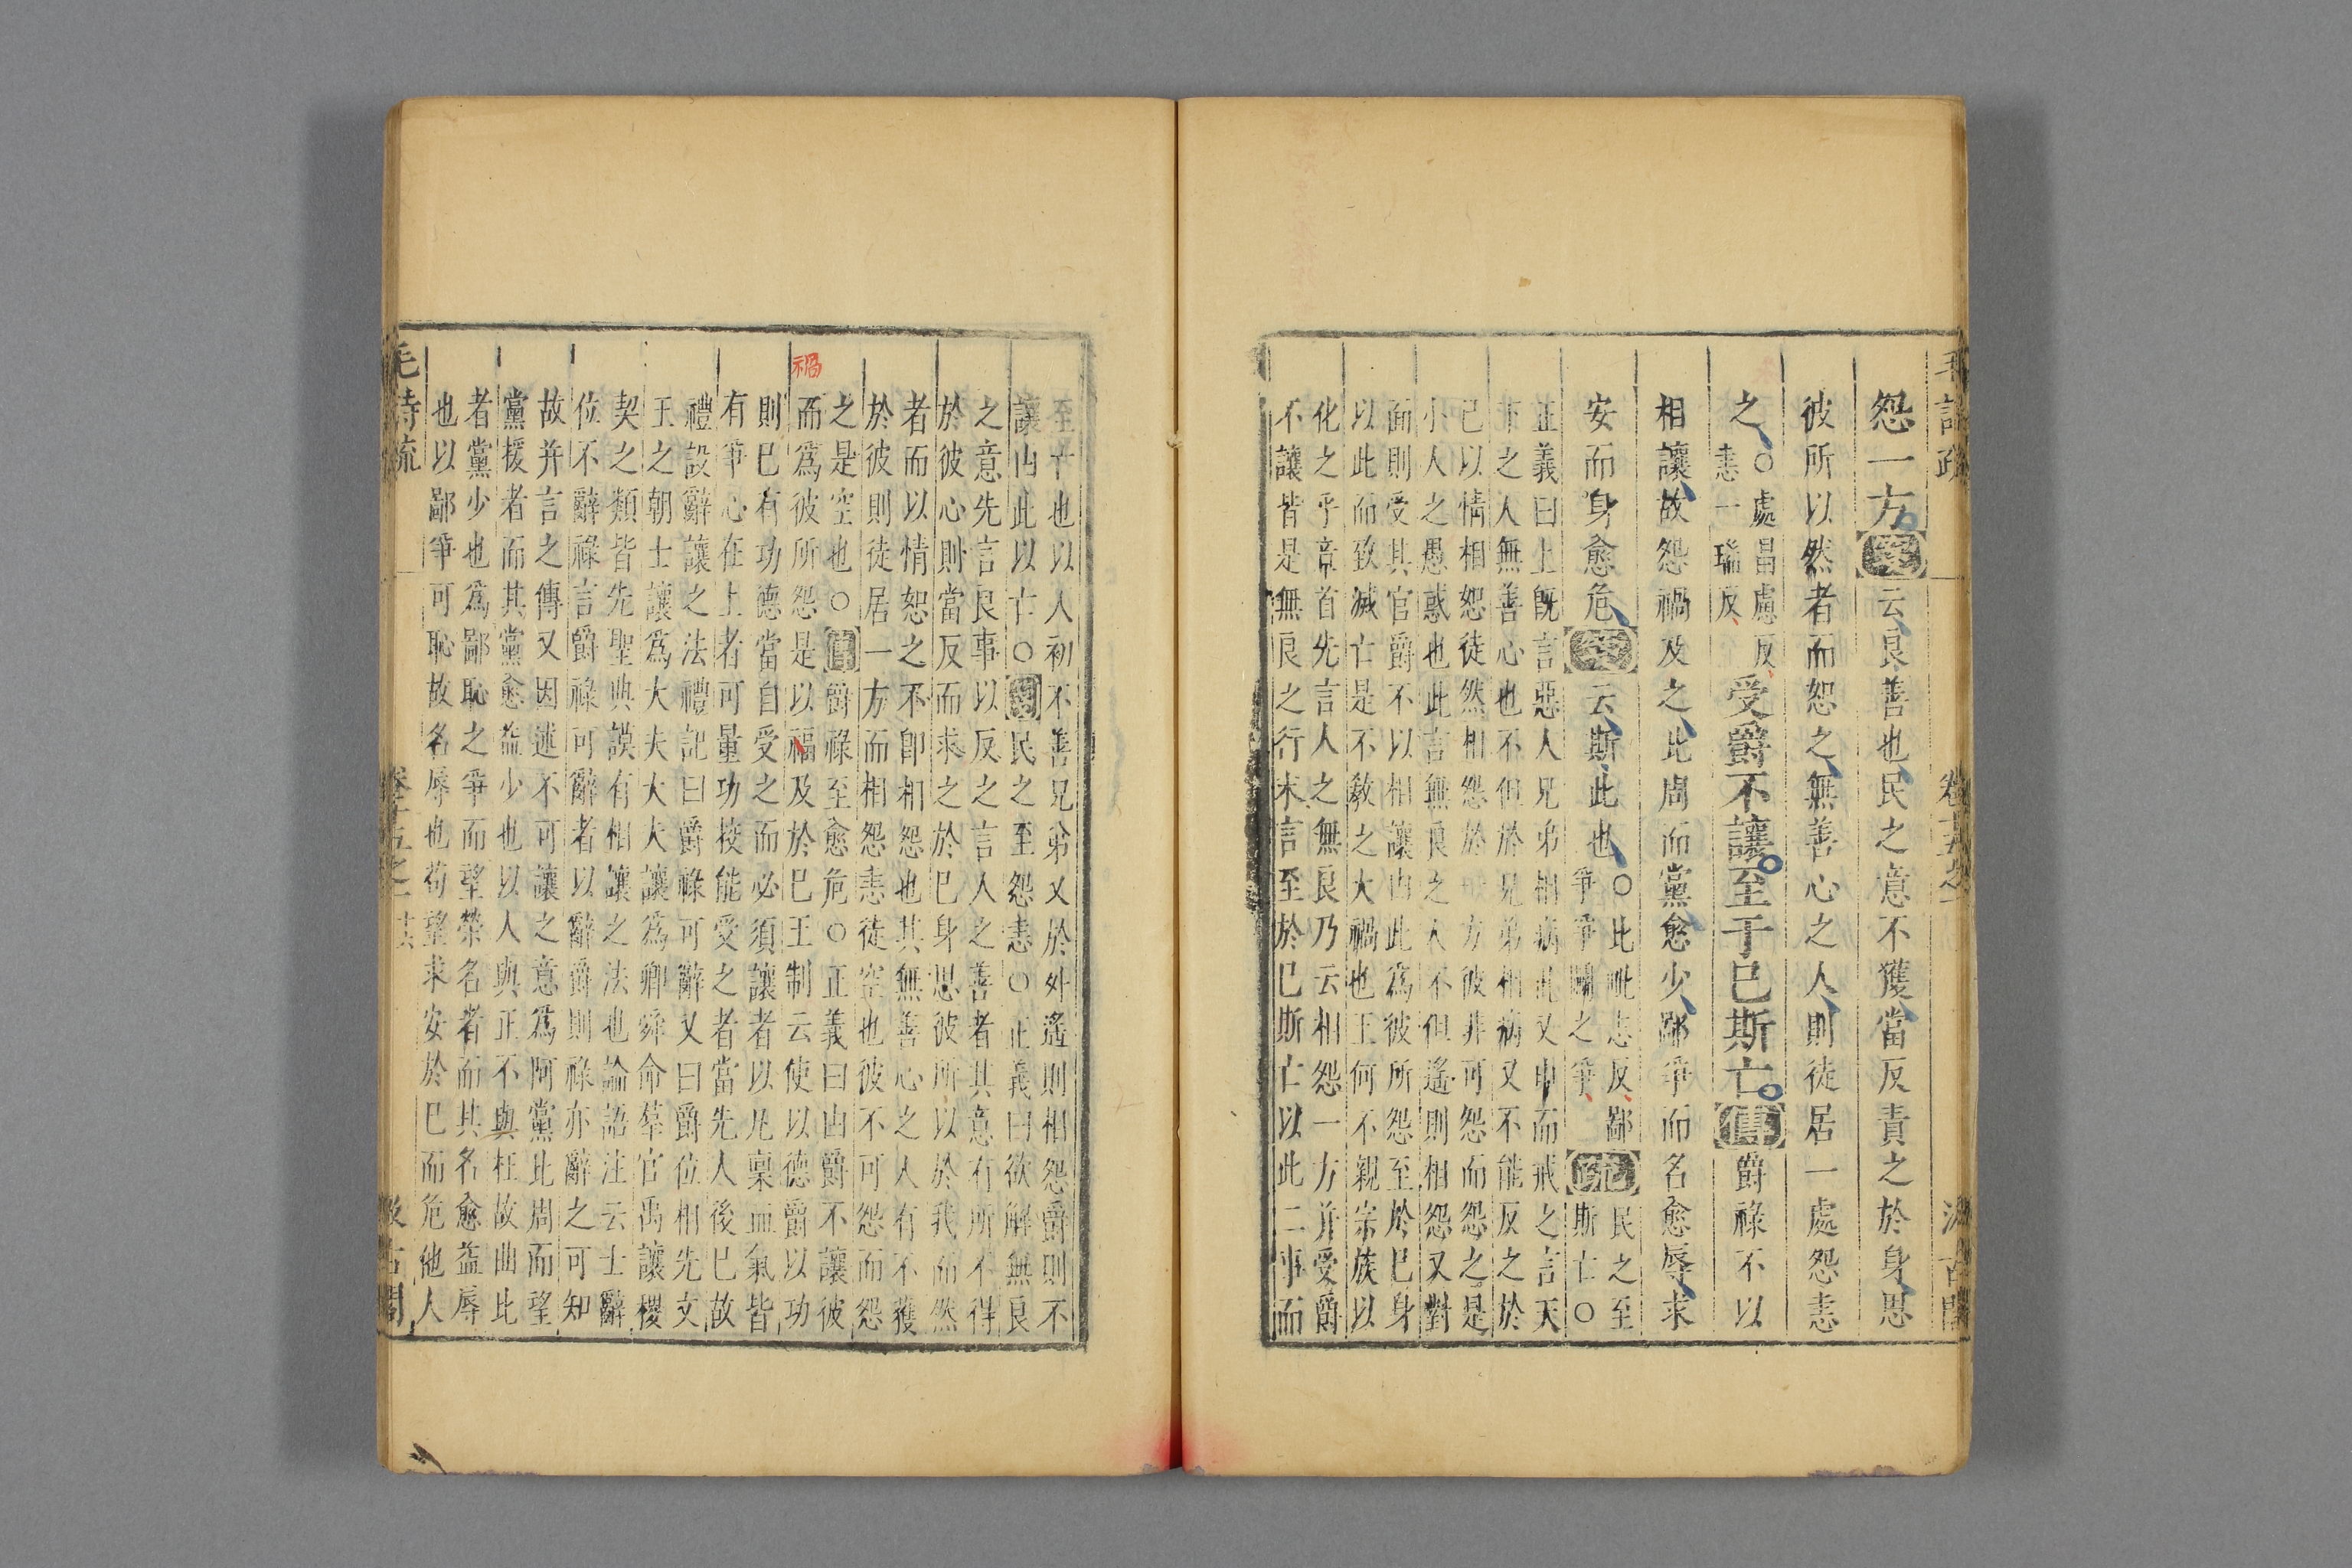 毛詩疏 卷十五之一 汲古閣
怨一方箋云良善也民之意不獲當反責之於身思
彼所以然者而恕之無善心之人則徒居一處怨恚
之○處昌慮反
恚一瑞反
受爵不讓至于已斯亡傳爵祿不以
相讓故怨禍及之比周而黨愈少鄙爭而名愈辱求
安而身愈危箋云斯此也○比毗志反鄙
爭爭鬬之爭
疏民之至
斯亡○
正義曰上既言惡人兄弟相病此又申而戒之言天
下之人無善心也不但於兄弟相病又不能反之於
已以情相恕徒然相怨於一方彼非可怨而怨之是
小人之愚惑也此言無良之人不但遙則相怨又對
面則受其官爵不以相讓由此為彼所怨至於已身
以此而致滅亡是不教之大禍也王何不親宗族以
化之乎章首先言人之無良乃云相怨一方并受爵
不讓皆是無良之行末言至於已斯亡以此二事而
至亡也以人初不善兄弟又於外遙則相怨爵則不
讓由此以亡○箋民之至怨恚○正義曰欲解無良
之意先言良事以反之言人之善者其意有所不得
於彼心則當反而求之於已身思彼所以於我而然
者而以情恕之不卽相怨也其無善心之人有不獲
於彼則徒居一方而相怨恚徒空也彼不可怨而怨
之是空也○傳爵祿至愈危○正義曰由爵不讓彼
而爲彼所怨是以福及於已王制云使以德爵以功
禍
則已有功德當自受之而必須讓者以凡稟血氣皆
有爭心在上者可量功授能受之者當先人後已故
禮設辭讓之法禮記曰爵祿可辭又曰爵位相先文
王之朝士讓爲大夫大夫讓爲卿舜命羣官禹讓稷
契之類皆先聖典謨有相讓之法也論語注云士辭
位不辭祿言爵祿可辭者以辭爵則祿亦辭之可知
故并言之傳又因述不可讓之意爲阿黨比周而望
黨援者而其黨愈益少也以人與正不與枉故曲比
者黨少也爲鄙恥之爭而望榮名者而其名愈益辱
也以鄙爭可恥故名辱也苟望求安於已而危他人
毛詩疏 卷十五之一 汲古閣